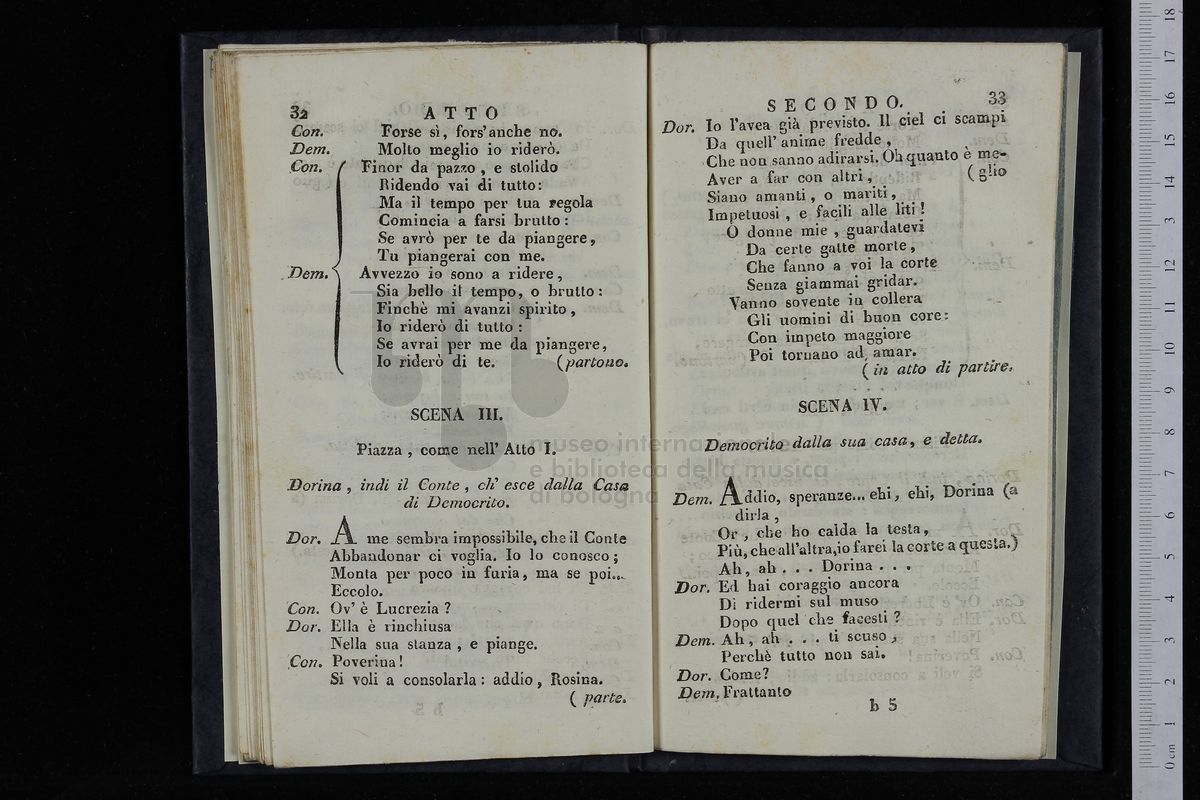 32 ATTO
Con. Forse sì, fors' anche no.
Dem. Molto meglio io riderò.
Con. Finor da pazzo, e stolido
Ridendo vai di tutto:
Ma il tempo per tua regola
Comincia a farsi brutto:
Se avrò per te da piangere,
Tu piangerai con me.
Dem. Avvezzo io sono a ridere,
Sia bello il tempo, o brutto:
Finchè mi avanzi spirito,
Io riderò di tutto:
Se avrai per me da piangere,
Io riderò di te. (partono.
SCENA III.
Piazza, come nell' Atto I.
Dorina, indi il Conte, ch' esce dalla Casa
di Democrito.
Dor. A me sembra impossibile, che il Conte
Abbandonar ci voglia. Io lo conosco;
Monta per poco in furia, ma se poi...
Eccolo.
Con. Ov' è Lucrezia?
Dor. Ella è rinchiusa
Nella sua stanza, e piange.
Con. Poverina!
Si voli a consolarla: addio, Rosina.
( parte.
SECONDO. 33
Dor. Io l'avea già previsto. Il ciel ci scampi
Da quell' anime fredde,
Che non sanno adirarsi. Oh quanto è me-
Aver a far con altri, (glio
Siano amanti, o mariti,
Impetuosi, e facili alle liti!
O donne mie, guardatevi
Da certe gatte morte,
Che fanno a voi la corte
Senza giammai gridar.
Vanno sovente in collera
Gli uomini di buon core:
Con impeto maggiore
Poi tornano ad amar.
( in atto di partire.
SCENA IV.
Democrito dalla sua casa, e detta.
Dem. Addio, speranze... ehi, ehi, Dorina (a
dirla,
Or, che ho calda la testa,
Più, che all'altra, io farei la corte a questa.)
Ah, ah... Dorina...
Dor. Ed hai coraggio ancora
Di ridermi sul muso
Dopo quel che facesti?
Dem. Ah, ah... ti scuso,
Perchè tutto non sai.
Dor. Come?
Dem. Frattanto
b 5
museo internazionale
e biblioteca della musica
di bologna
0 cm 1 2 3 4 5 6 7 8 9 10 11 12 13 14 15 16 17 18